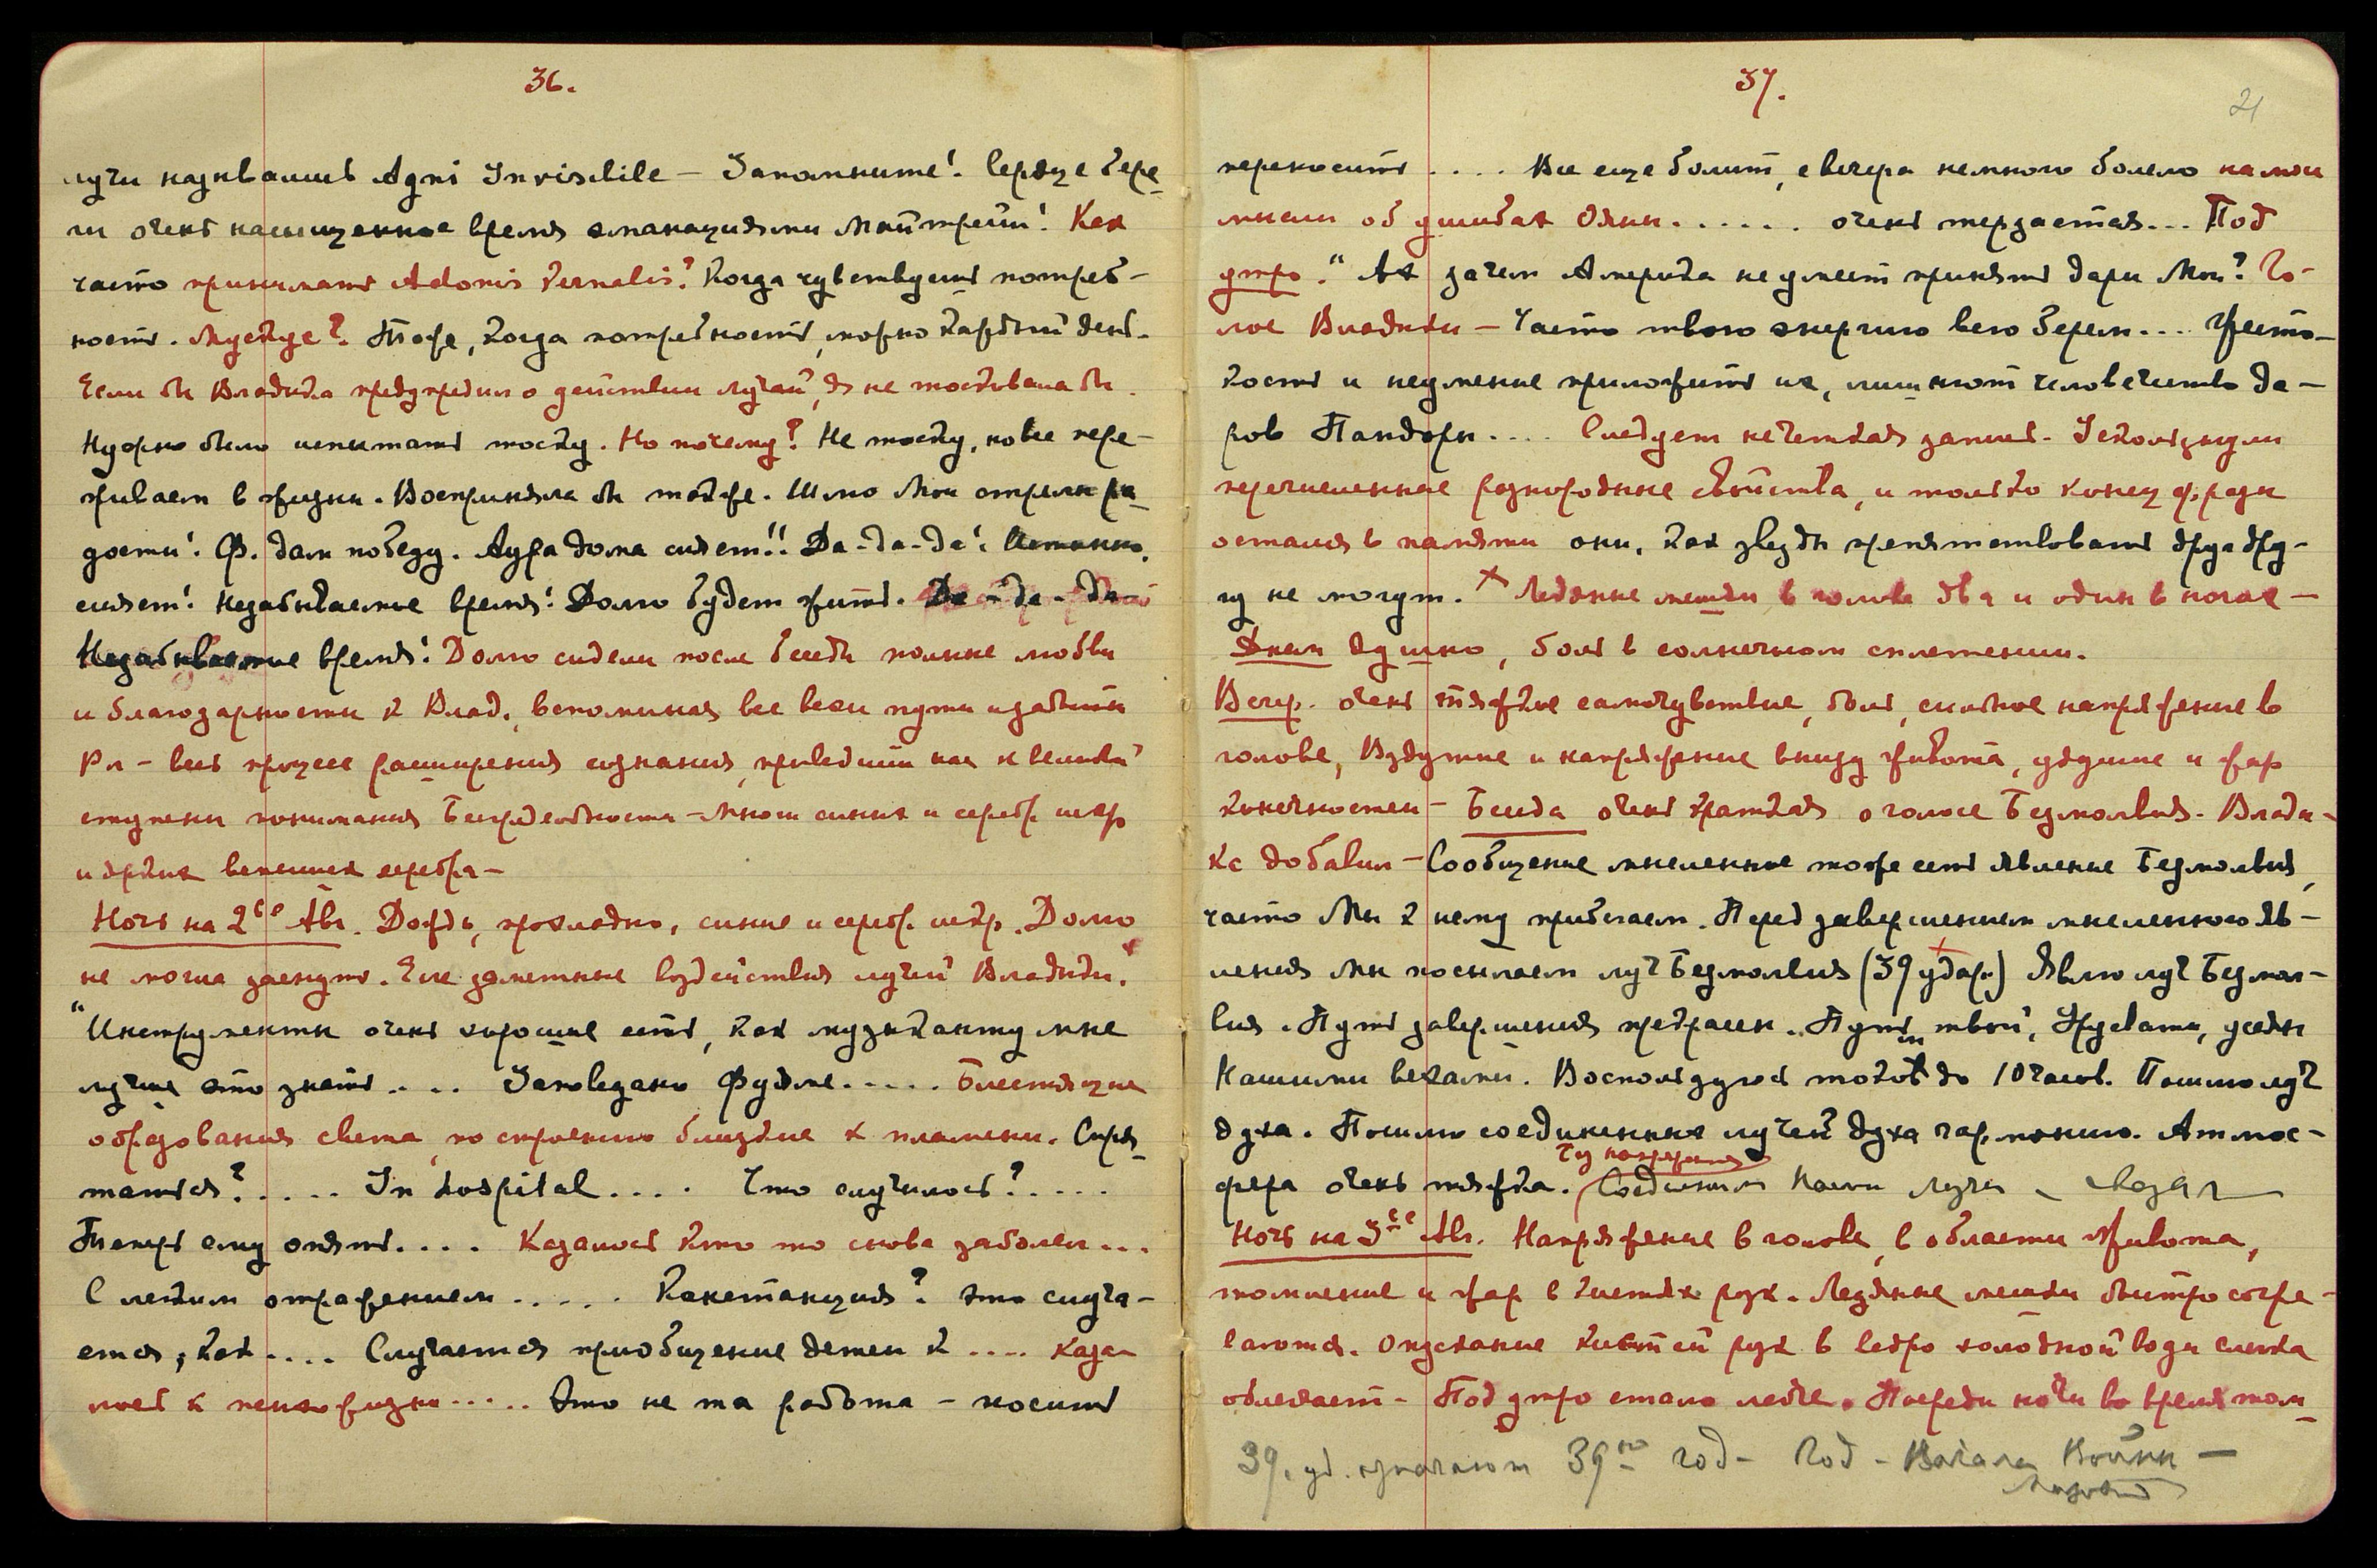 36.
лучи назывались Agni Invisibile — Запомните! Сердце бере-
ги очень насыщенное время эманациями Майтрейи! Как
часто принимать Adonis Vernalis? Когда чувствуешь потреб-
ность. Мускус? Тоже, когда потребность, можно каждый день.
Если бы Владыка предупредил о действии лучей, я не тосковала бы.
Нужно было испытать тоску. Но почему? Не тоску, но все пере-
живаем в жизни. Восприняла бы также. Шлю Мои стрелы ра-
дости! Ф. дам победу. Аура дома сияет!! Да-да-да!
сияет! Незабываемое время! Долго будет жить. Да-да-да
Незабываемое время! Долго сидели после беседы полные любви
и благодарности к Влад. вспоминая все вехи пути и заботы
весь процесс расширения сознания, приведший нас к великой
ступени понимания Беспредельности — Много синих и серебр. искр
и ярких вспышек серебра —
Ночь на 2ое Авг. Дождь, прохладно, синие и серебр. искр. Долго
не могла заснуть. Еле заметные воздействия лучей Владыки.
"Инструменты очень хорошие есть, как музыканту мне
лучше это знать .... Заповедано Фуяме ..... Блестящие
образования света, по строению близкие к пламени. Спря-
таться? ..... In hospital .... Что случилось? .....
Теперь ему опять .... Казалось кто то снова заболел ...
С легким отражением ..... Квестанция? Это случа-
ется, как .... Случается приобщение детей к .... каза-
лось к .... Это не та работа — носить
37.
21
переносить .... Все еще болит, с вечера немного болело на мои
мысли об ушибах Ояны ...... очень терзается ... Под
утро." Ах зачем Америка не умеет принять дары Мои? Го-
лос Владыки — Часто твою энергию всю берем ... Жесто-
кость и неумение приложить их, лишают человечество да-
ров Пандоры .... Следует нечеткая запись. Ускользнули
перечисленные разнородные свойства, и только конец фразы
остался в памяти они, как звезды препятствовать друг дру-
гу не могут. × Ледяные мешки в голове два и один в ногах —
Днем душно, боль в солнечном сплетении.
Вечер. очень тяжкое самочувствие, боль, сильное напряжение в
голове, Вздутие и напряжение внизу живота, удушие и жар
конечностей — Беседа очень краткая о голосе Безмолвия. Влады-
ка добавил — Сообщение мысленное тоже есть явление Безмолвия,
часто Мы к нему прибегаем. Перед завершением мысленного яв-
ления мы посылаем луч Безмолвия (39 удар.) Явлю луч Безмол-
вия. Путь завершения предрасен. Путь твой, Урусвати, усеян
Нашими веками. Воспользуюсь током до 10 часов. Пошлю луч
духа. Пошлю соединенных лучей духа гармонию. Атмос-
фера очень тяжка. Соединим Наши Лучи
Ночь на 3ье Авг. Напряжение в голове, в области живота,
томление и жар в кистях рук. Ледяные мешки быстро согре-
ваются. Опускание кистей рук в ведро холодной воды слегка
облегчает — Под утро стало легче. Посреди ночи во время том-
39. уд. означают 39ый год — Год — Начала Войны —